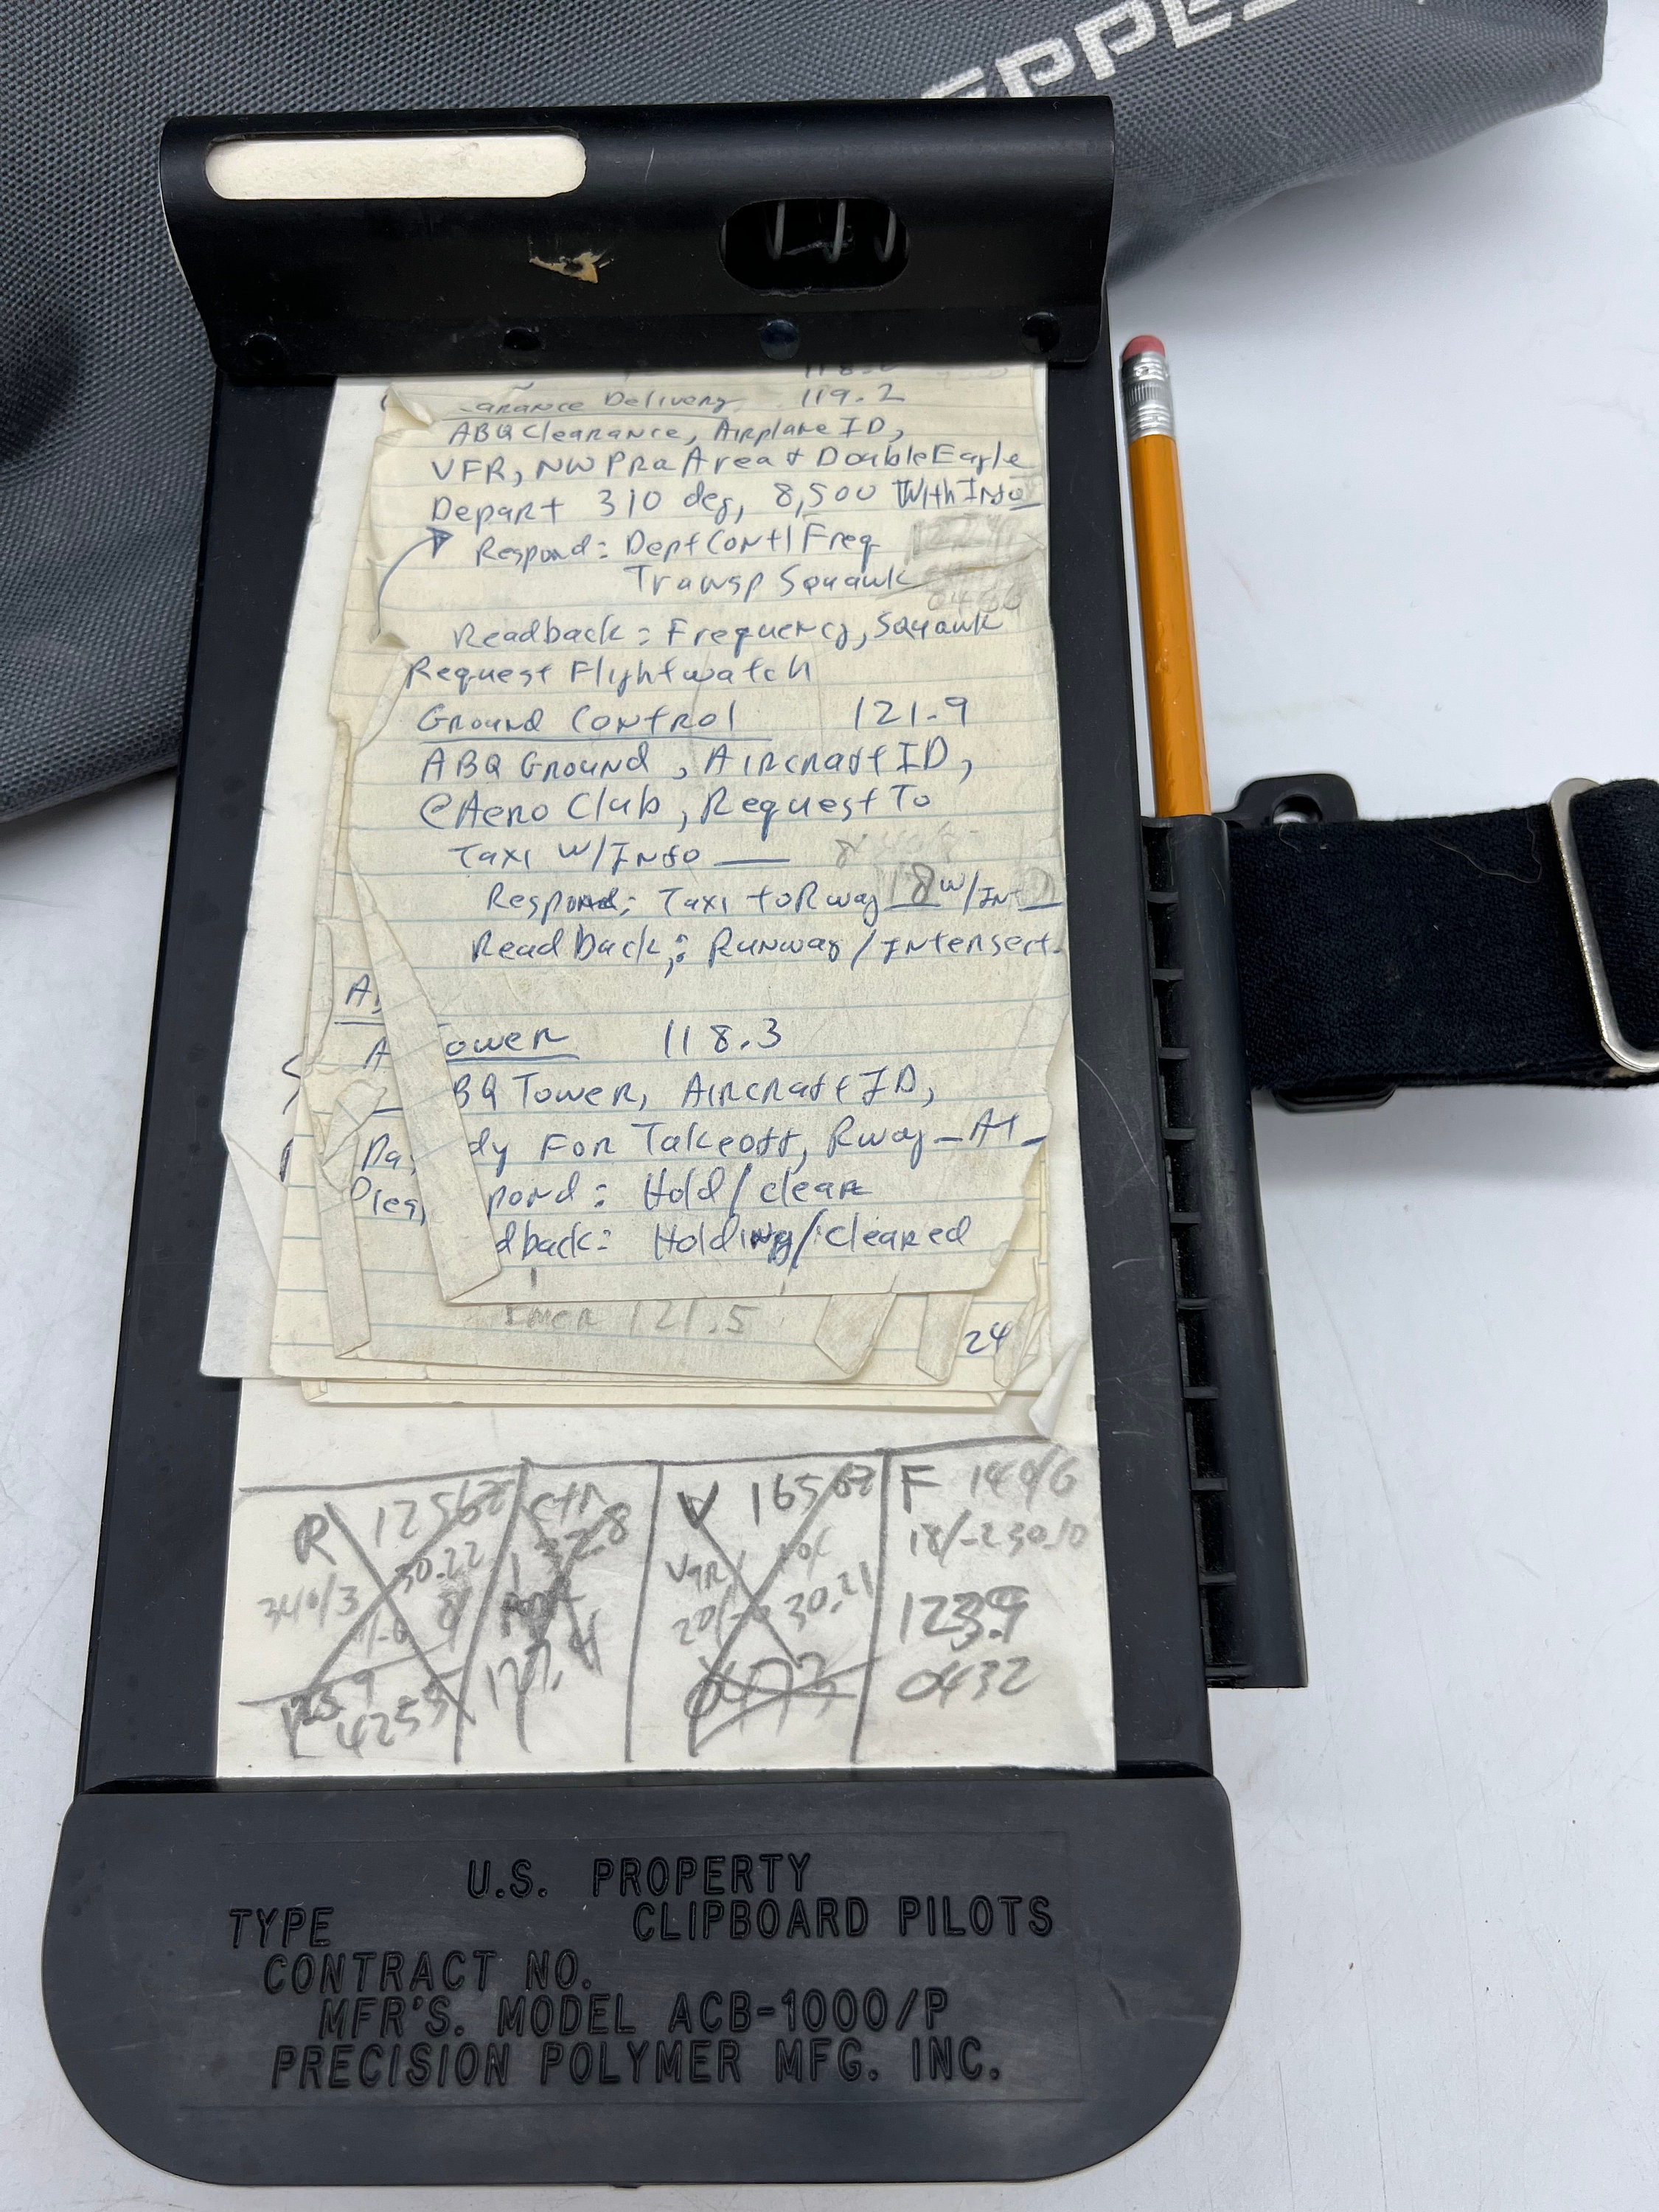 EPPE
119.2
arance Delivery
ABQ Clearance, Airplane ID,
VFR, NW Pra Area & Double Eagle
Depart 310 deg, 8,500 With Info
Respond: Dept Contl Freq
Transp Squawk
Readback: Frequency, Squawk
Request Flightwatch
Ground Control 121.9
ABQ Ground, Aircraft ID,
@Aero Club, Request To
Taxi w/Info __
Respond: Taxi to Rway 18 w/Int
Read back: Runway/Intersect.
ower 118.3
BQ Tower, Aircraft ID,
dy For Takeoff, Rway _ At _
pond: Hold/clear
dback: Holding/cleared
Emer 121.5
24
R 12562
30.22
340/3
4255
V 16562
30.21
20/-2
0473
F 149/6
18/-2 30.10
123.9
0432
U.S. PROPERTY
TYPE CLIPBOARD PILOTS
CONTRACT NO.
MFR'S. MODEL ACB-1000/P
PRECISION POLYMER MFG. INC.